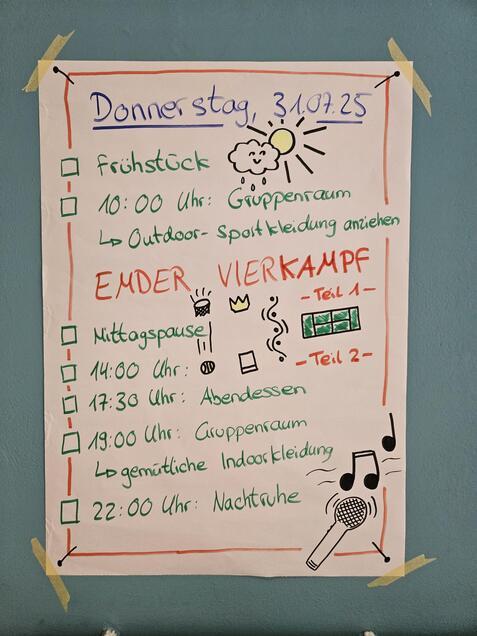 Donnerstag, 31.07.25
Frühstück
10:00 Uhr: Gruppenraum
↳ Outdoor-Sportkleidung anziehen
EMDER VIERKAMPF
- Teil 1 -
Mittagspause
- Teil 2 -
14:00 Uhr:
17:30 Uhr: Abendessen
19:00 Uhr: Gruppenraum
↳ gemütliche Indoorkleidung
22:00 Uhr: Nachtruhe